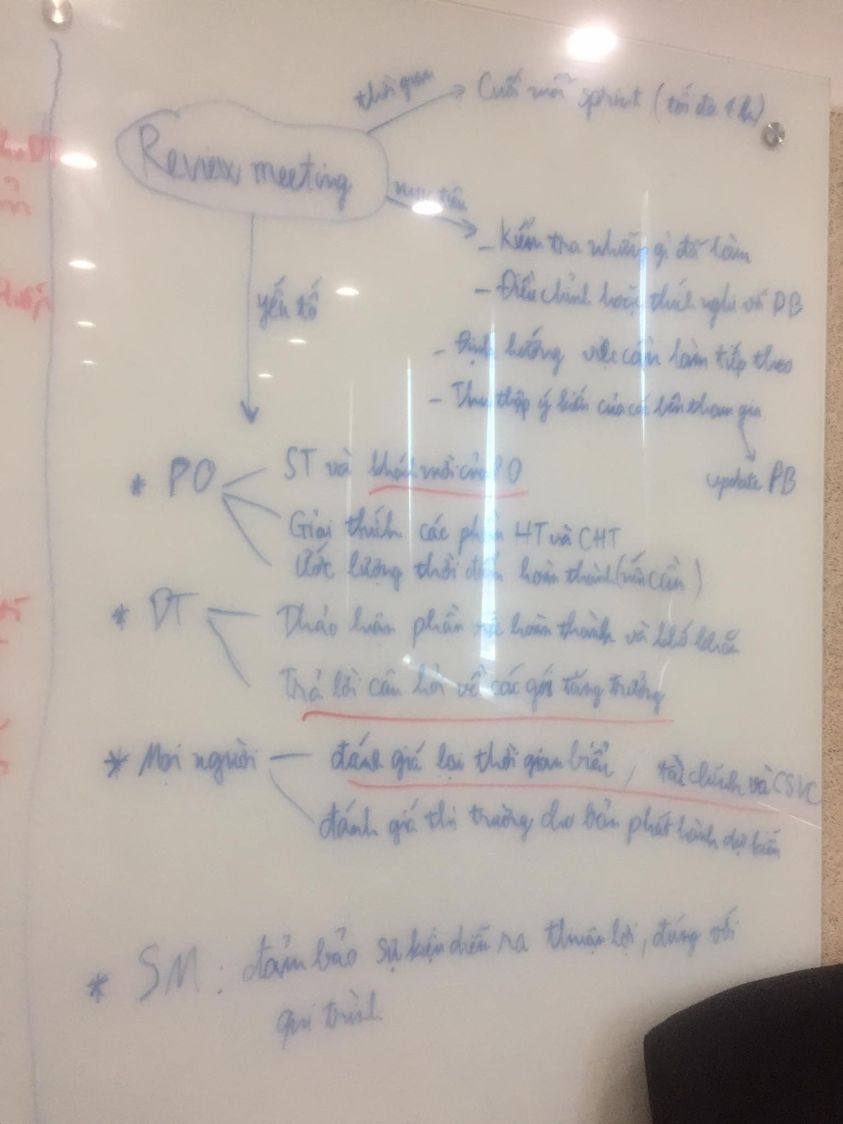 thời gian
Cuối mỗi sprint (tối đa 4h)
Review meeting
mục tiêu
- Kiểm tra những gì đã làm
yếu tố
- Điều chỉnh hoặc thích nghi về PB
- Định hướng việc cần làm tiếp theo
- Thu thập ý kiến của các bên tham gia
update PB
* PO
ST và khách mời của PO
Giải thích các phần HT và CHT
Ước lượng thời điểm hoàn thành (nếu cần)
* DT
Thảo luận phần đã hoàn thành và khó khăn
Trả lời câu hỏi về các gói tăng trưởng
* Mọi người
đánh giá lại thời gian biểu, tài chính và CSVC
đánh giá thị trường cho bản phát hành dự kiến
* SM: đảm bảo sự kiện diễn ra thuận lợi, đúng với
qui trình